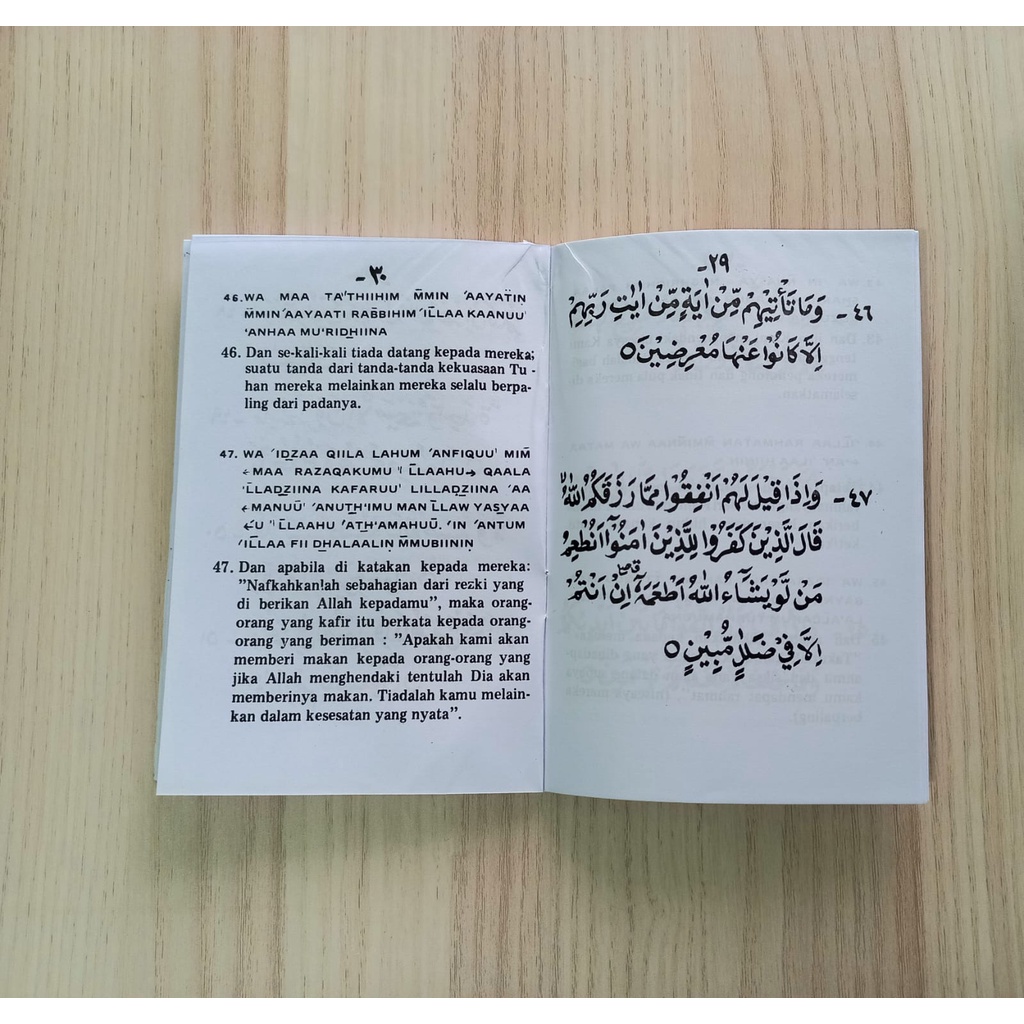 -٢٩
٤٦ - وَمَا تَأْتِيْهِمْ مِّنْ اٰيَةٍ مِّنْ اٰيٰتِ رَبِّهِمْ
اِلَّا كَانُوْا عَنْهَا مُعْرِضِيْنَ ○
٤٧ - وَاِذَا قِيْلَ لَهُمْ اَنْفِقُوْا مِمَّا رَزَقَكُمُ اللّٰهُ ۙ
قَالَ الَّذِيْنَ كَفَرُوْا لِلَّذِيْنَ اٰمَنُوْٓا اَنُطْعِمُ
مَنْ لَّوْ يَشَآءُ اللّٰهُ اَطْعَمَهٗٓ ۖ اِنْ اَنْتُمْ
اِلَّا فِيْ ضَلٰلٍ مُّبِيْنٍ ○
-٣٠
46. WA MAA TA'THIIHIM M̄MIN 'AAYATIN
M̄MIN 'AAYAATI RAB̄BIHIM 'IL̄LAA KAANUU'
'ANHAA MU'RIDHIINA
46. Dan se-kali-kali tiada datang kepada mereka;
suatu tanda dari tanda-tanda kekuasaan Tu-
han mereka melainkan mereka selalu berpa-
ling dari padanya.
47. WA 'IDZAA QIILA LAHUM 'ANFIQUU' MIM̄
←MAA RAZAQAKUMU 'I L̄LAAHU→ QAALA
'L̄LADZIINA KAFARUU' LILLADZIINA 'AA
←MANUŪ' 'ANUTH'IMU MAN L̄LAW YASYAA
←'U 'I L̄LAAHU 'ATH'AMAHUŪ. 'IN 'ANTUM
'IL̄LAA FII DHALAALIN M̄MUBIININ
47. Dan apabila di katakan kepada mereka:
"Nafkahkanlah sebahagian dari rezki yang
di berikan Allah kepadamu", maka orang-
orang yang kafir itu berkata kepada orang-
orang yang beriman : "Apakah kami akan
memberi makan kepada orang-orang yang
jika Allah menghendaki tentulah Dia akan
memberinya makan. Tiadalah kamu melain-
kan dalam kesesatan yang nyata".